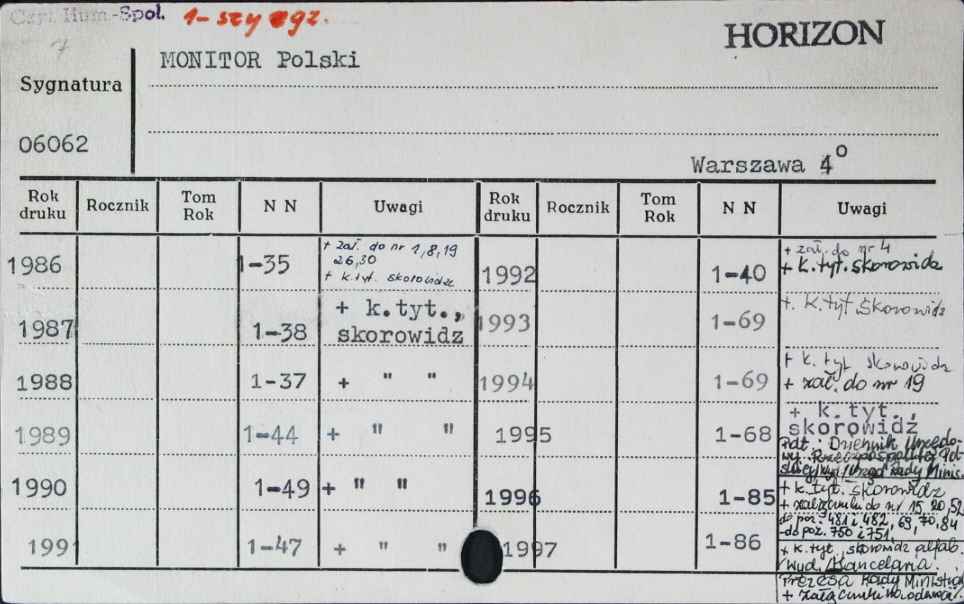 Czyt. Hum.-Społ. 1-szy egz.
HORIZON
7
MONITOR Polski
Sygnatura
06062
Warszawa 4°
Rok druku Rocznik Tom Rok N N Uwagi Rok druku Rocznik Tom Rok N N Uwagi
1986 1-35 + zał. do nr 1,8,19
26,30
+ k.tyt. skorowidz
1992 1-40 + zał. do nr 4
+ k.tyt. skorowidz
1987 1-38 + k.tyt.,
skorowidz
1993 1-69 + k.tyt, skorowidz
1988 1-37 + " "
1994 1-69 + k. tyt skorowidz
+ zał. do nr 19
1989 1-44 + " "
1995 1-68 + k.tyt.,
skorowidz
Pdt.: Dziennik Urzędo-
wy Rzeczpospolitej Pol-
skiej Wyd. Urząd Rady Minis.
1990 1-49 + " "
1996 1-85 + k.tyt. skorowidz
+ załączniki do nr 15, 20, 52
do poz. 481 i 482, 69, 70, 84
-do poz. 750 i 751,
1991 1-47 + " "
1997 1-86 + k.tyt, skorowidz alfab.
Wyd. Kancelaria
Prezesa Rady Ministrów
+ załączniki